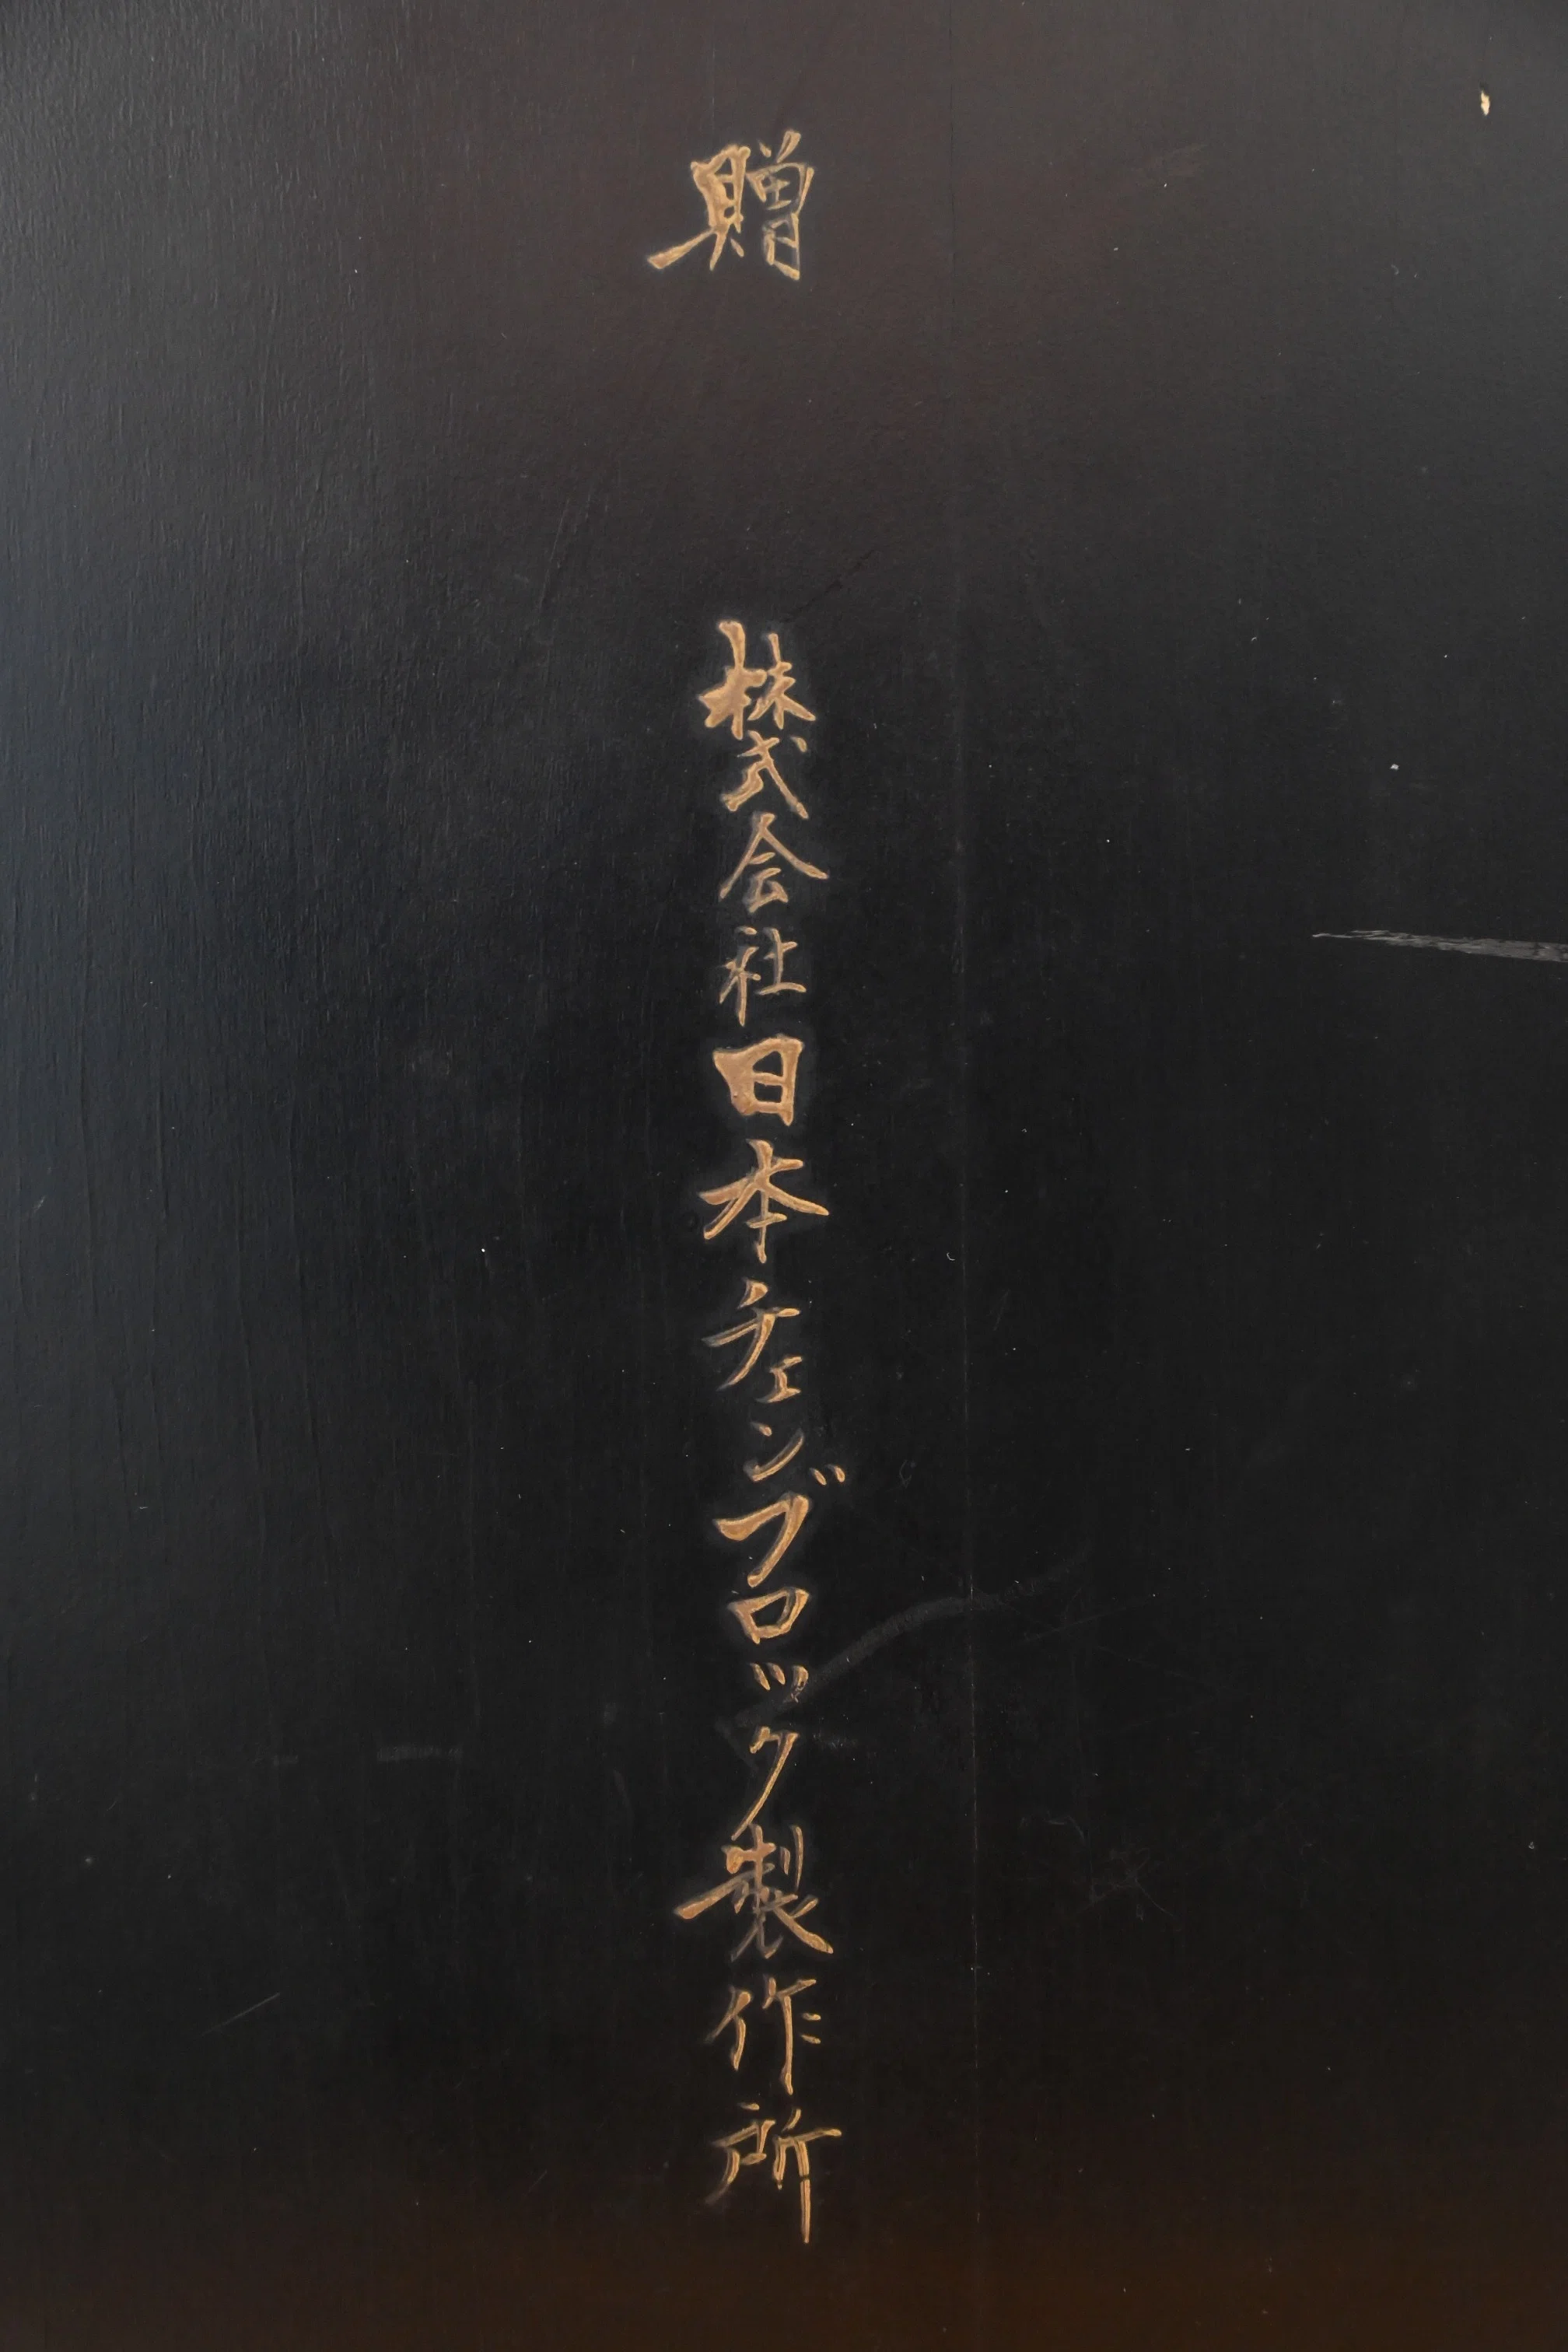 贈
株式会社日本チェンブロック製作所